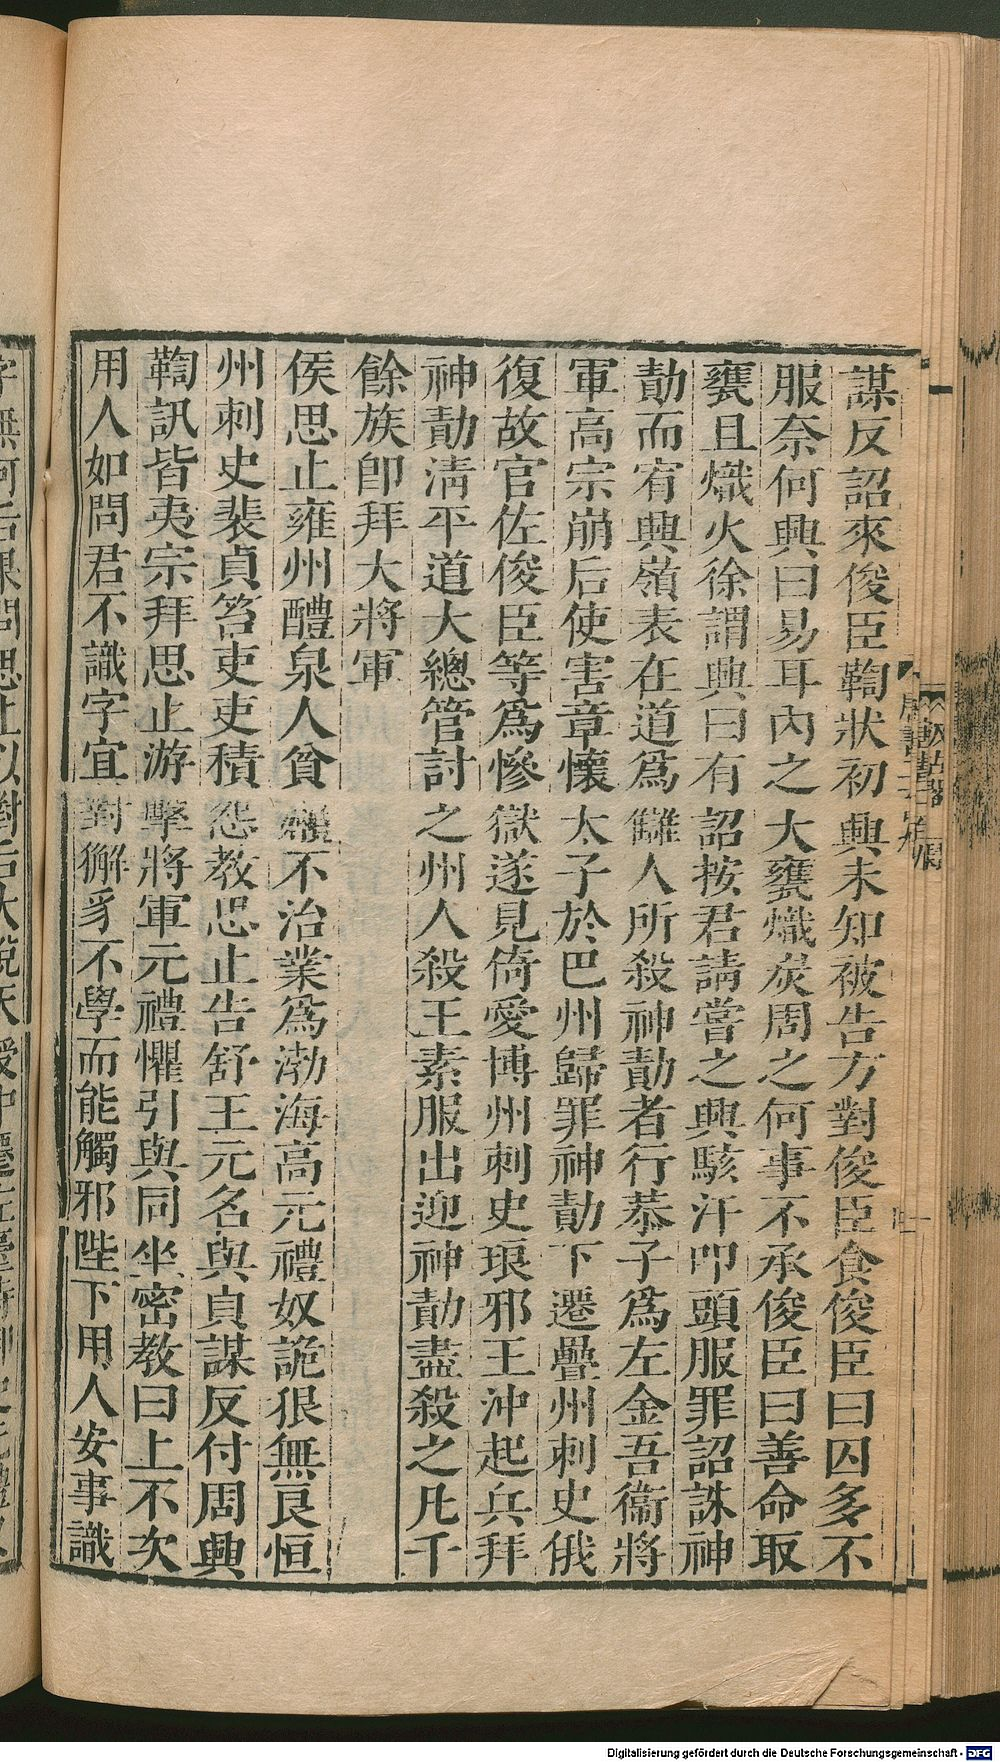 謀反詔來俊臣鞫狀初興未知被告方對俊臣食俊臣曰囚多不
服奈何興曰易耳內之大甕熾炭周之何事不承俊臣曰善命取
甕且熾火徐謂興曰有詔按君請嘗之興駭汗叩頭服罪詔誅神
勣而宥興嶺表在道爲讎人所殺神勣者行恭子爲左金吾衞將
軍高宗崩后使害章懷太子於巴州歸罪神勣下遷疊州刺史俄
復故官佐俊臣等爲慘獄遂見倚愛博州刺史琅邪王沖起兵拜
神勣淸平道大總管討之州人殺王素服出迎神勣盡殺之凡千
餘族卽拜大將軍
侯思止雍州醴泉人貧嬾不治業爲渤海高元禮奴詭狠無良恒
州刺史裴貞笞吏吏積怨敎思止告舒王元名與貞謀反付周興
鞫訊皆夷宗拜思止游擊將軍元禮懼引與同坐密敎曰上不次
用人如問君不識字宜對獬豸不學而能觸邪陛下用人安事識
Digitalisierung gefördert durch die Deutsche Forschungsgemeinschaft - DFG